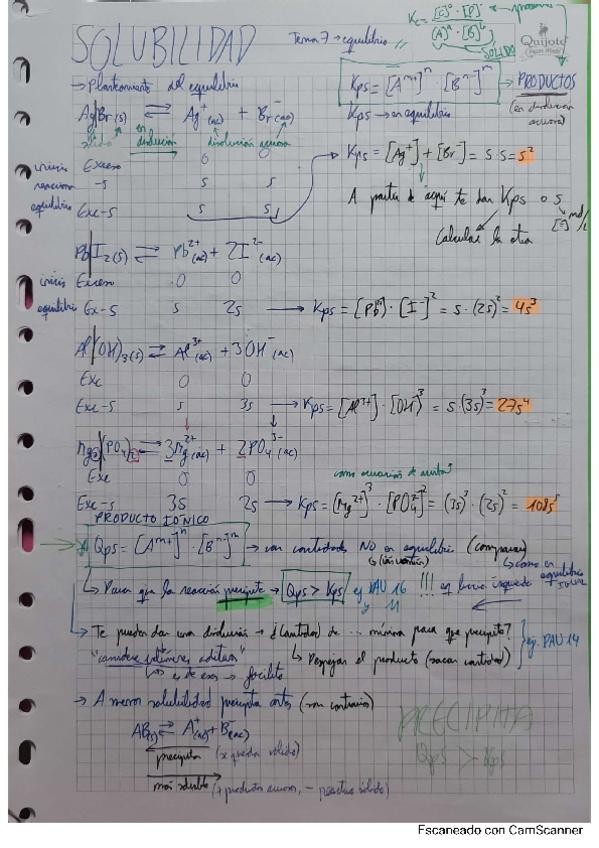 SOLUBILIDAD
Tema 7 → equilibrio
Kc = [C]^c · [P]
[A]^a · [B]^b
SOLIDO
Quijote
→ Planteamiento del equilibrio
Kps = [A^m+]^n · [B^n-]^m → PRODUCTOS
(en disolución acuosa)
AgBr(s) ⇌ Ag+(ac) + Br-(ac)
Kps → en equilibrio
sólido en disolución disolución acuosa
inicio Exceso 0 0
Kps = [Ag+] + [Br-] = s · s = s²
reacciona -s s s
equilibrio Exc-s s s
A partir de aquí te dan Kps o s
[=] mol/L
Calcular la otra
PbI2(s) ⇌ Pb2+(ac) + 2I2-(ac)
inicio Exceso 0 0
equilibrio Ex-s s 2s → Kps = [Pb] · [I-]² = s · (2s)² = 4s³
Al(OH)3(s) ⇌ Al3+(ac) + 3OH-(ac)
Exc 0 0
Exc-s s 3s → Kps = [Al3+] · [OH-]³ = s · (3s)³ = 27s⁴
Mg3(PO4)2 ⇌ 3Mg2+(ac) + 2PO4 3-(ac)
Exc 0 0
Exc-s 3s 2s → Kps = [Mg2+]³ · [PO4]² = (3s)³ · (2s)² = 108s⁵
PRODUCTO IÓNICO
Qps = [A^m+]^n · [B^n-]^m → van cantidades NO en equilibrio (comparar)
→ Para que la reacción precipite → Qps > Kps ej PAU 16 y 11 !!!
→ Te pueden dar una disolución → ¿Cantidad de ... mínima para que precipite?
ej. PAU 14
"considere volúmenes aditivos"
→ Despejar el producto (sacar cantidad)
→ A menor solubilidad precipita antes (son contrarios)
AB(s) ⇌ A+(ac) + B-(ac)
precipita (x queda sólido)
más soluble (+ productos acuosos, - reactivo sólido)
PRECIPITA
Qps > Kps
Escaneado con CamScanner